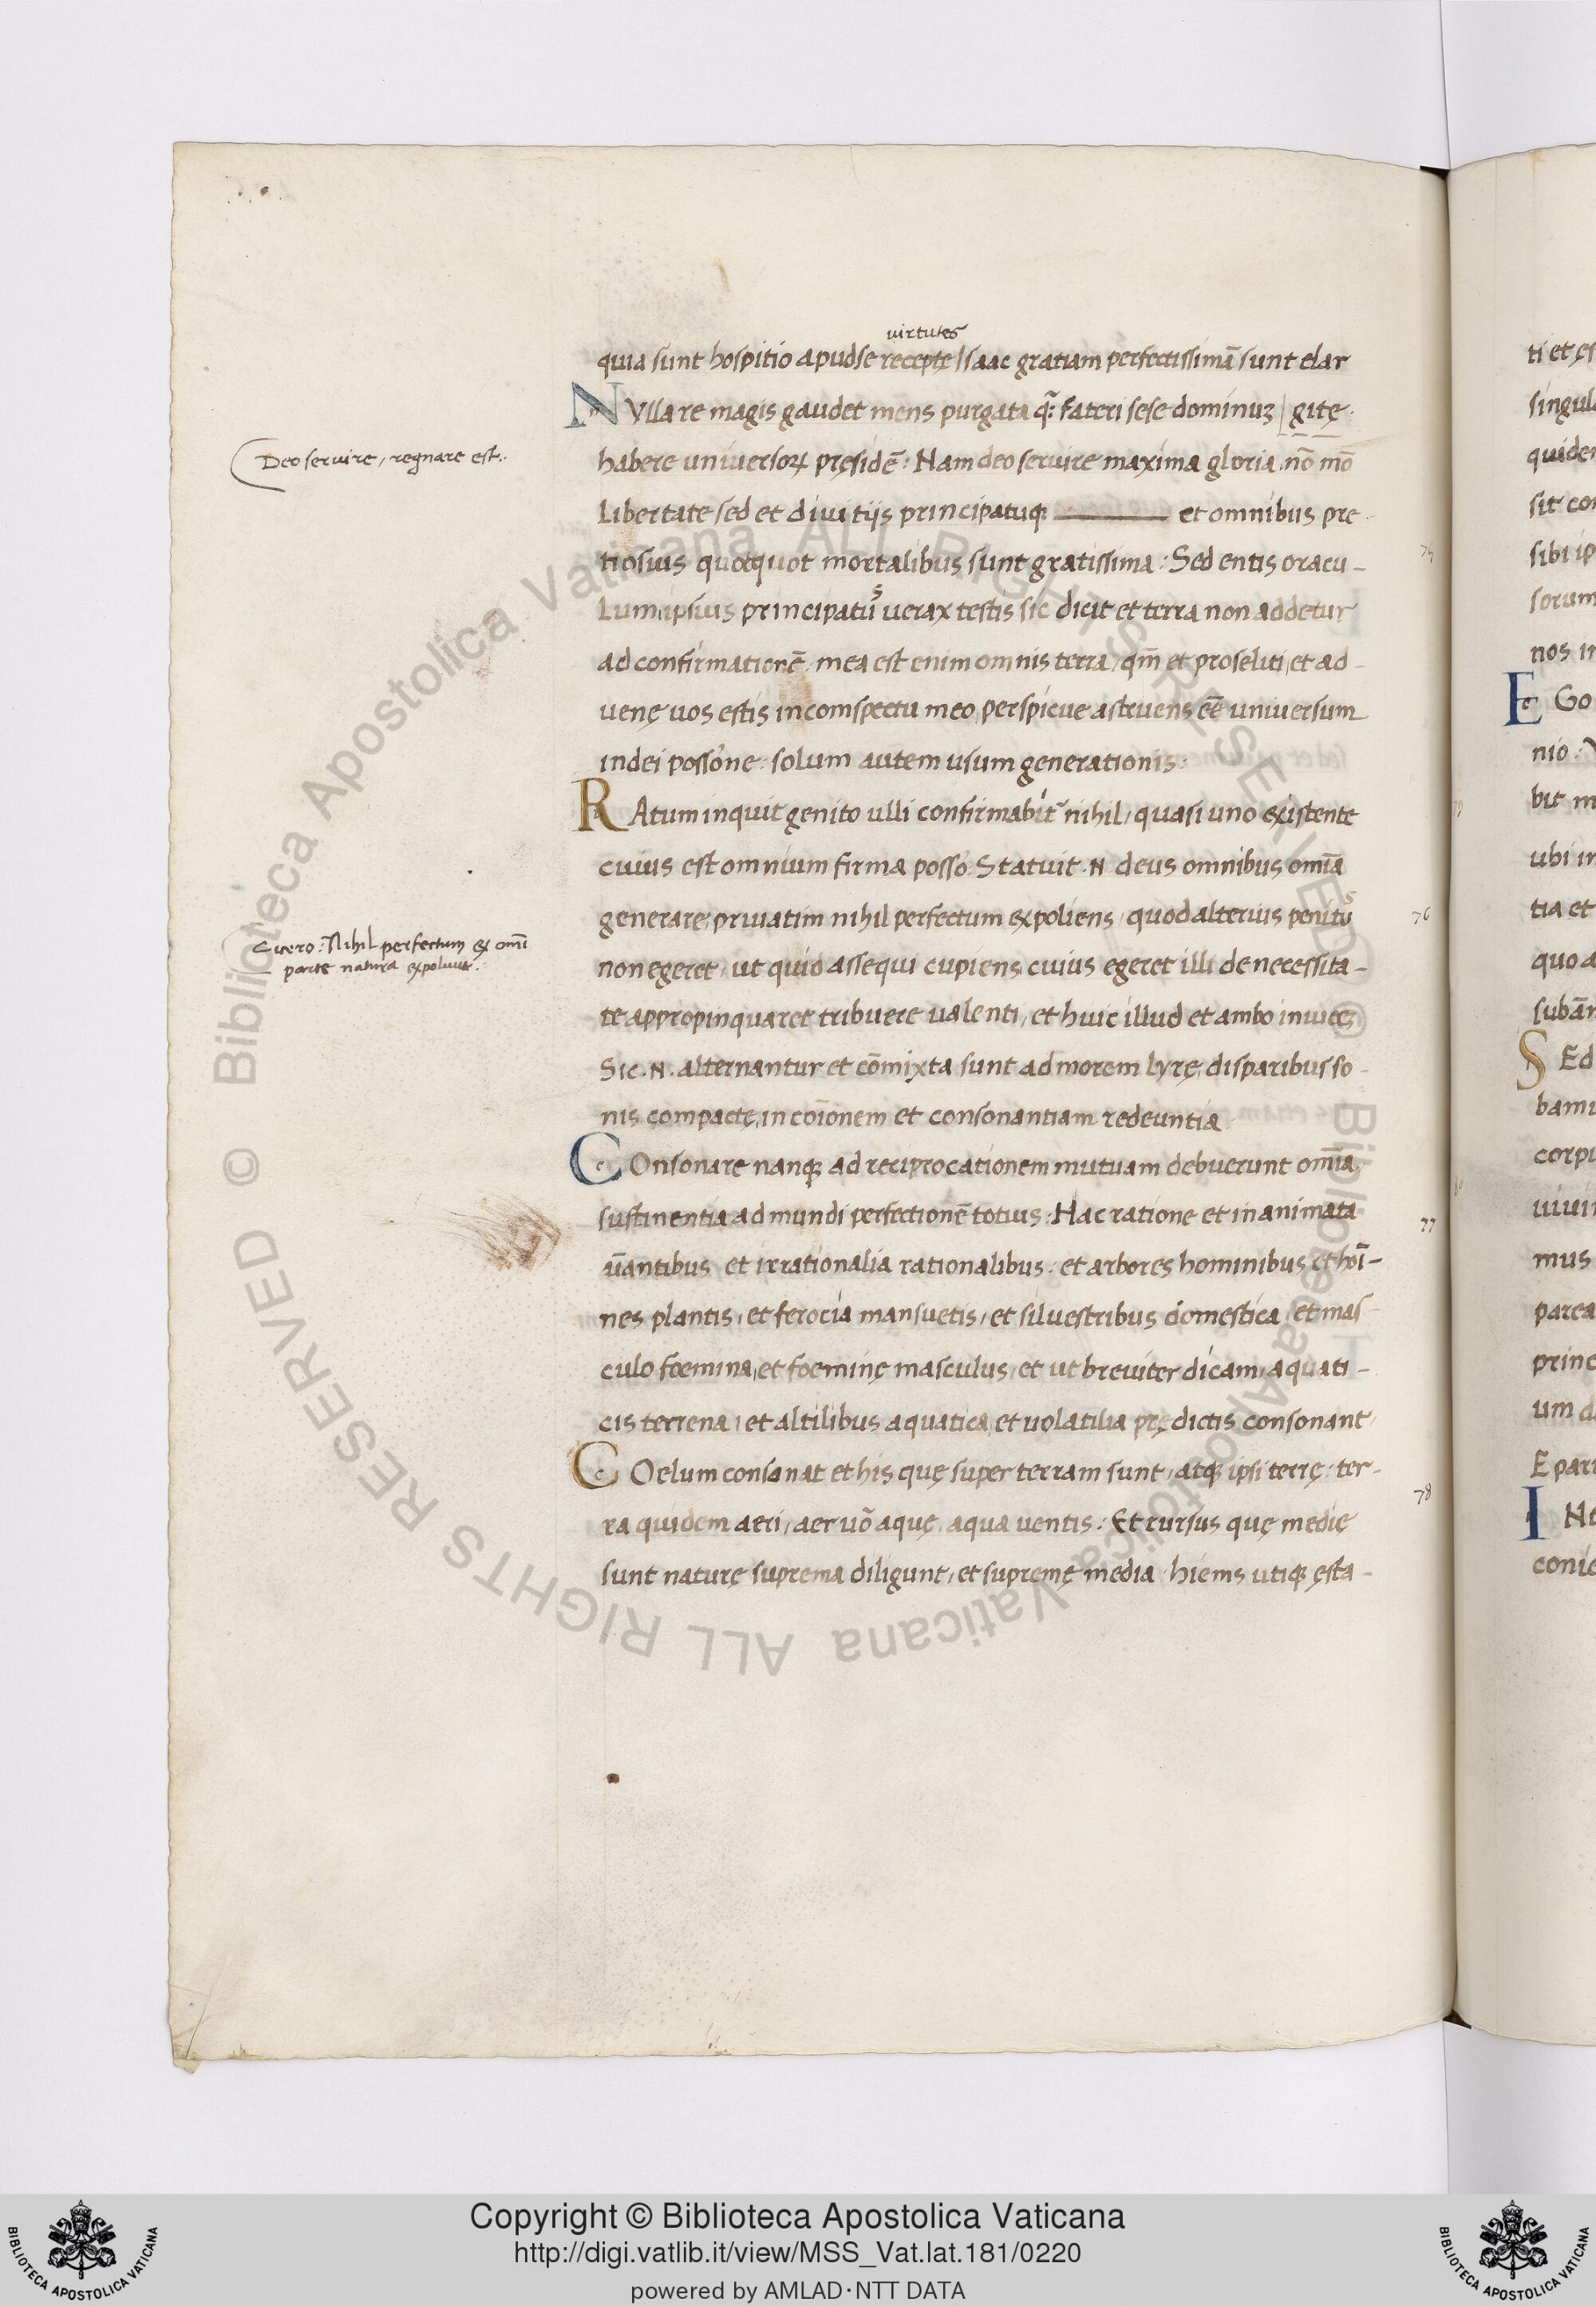 virtutes
quia sunt hospitio apud se receptę Isaac gratiam perfectissimā sunt elar
NVlla re magis gaudet mens purgata q̄: fateri sese dominuz | gitę.
habere universoꝝ pręsidē: Nam deo servire maxima gloria nō mō
Deo servire, regnare est.
libertate sed et divitijs principatuqꝫ et omnibus pre-
tiosius quotquot mortalibus sunt gratissima: Sed entis oracu-
75
lum ipsius principatus verax testis sic dicit et terra non addetur
ad confirmationē. mea est enim omnis terra, qm̄ et proseliti, et ad-
venę vos estis in comspectu meo, perspicue astruens eē universum
in dei possōne: solum autem usum generationis:
RAtum inquit genito ulli confirmabit' nihil, quasi uno existente
cuius est omnium firma possō. Statuit .N. deus omnibus omīa
generare, privatim nihil perfectum expoliens, quod alterius penitus
76
Cicero: Nihil perfectum ex omī
parte natura expolivit.
non egeret, ut quid assequi cupiens cuius egeret illi de necessita-
te appropinquaret tribuere valenti, et huic illud et ambo invicez
Sic .N. alternantur et cōmixta sunt ad morem lyrę, disparibus so-
nis compactę, in coīonem et consonantiam redeuntia
COnsonare nanqꝫ ad reciprocationem mutuam debuerunt omīa,
sustinentia ad mundi perfectionē totius: Hac ratione et inanimata
77
ūantibus et irrationalia rationalibus: et arbores hominibus et hoī-
nes plantis, et ferocia mansuetis, et silvestribus domestica, et mas
culo foemina, et foeminę masculus, et ut breviter dicam, aquati-
cis terrena, et altilibus aquatica, et volatilia prędictis consonant,
COelum consonat et his quę super terram sunt, atqꝫ ipsi terrę: ter-
78
ra quidem aeri, aer vō aquę, aqua ventis: Et rursus quę medię
sunt naturę suprema diligunt, et supremę media. hiems utiqꝫ ęsta-
ti et ęs
singula
quidem
sit con
sibi ip
sorum
nos in
EGo
nio.
bit m
ubi in
tia et
quo a
subān
SEd
bamu
corpu
vivin
mus
parea
princ
um d
E pari
I
conie
Copyright © Biblioteca Apostolica Vaticana
http://digi.vatlib.it/view/MSS_Vat.lat.181/0220
powered by AMLAD·NTT DATA
BIBLIOTECA APOSTOLICA VATICANA
BIBLIOTECA APOSTOLICA VATICANA
© Biblioteca Apostolica Vaticana ALL RIGHTS RESERVED © Biblioteca Apostolica Vaticana ALL RIGHTS RESERVED